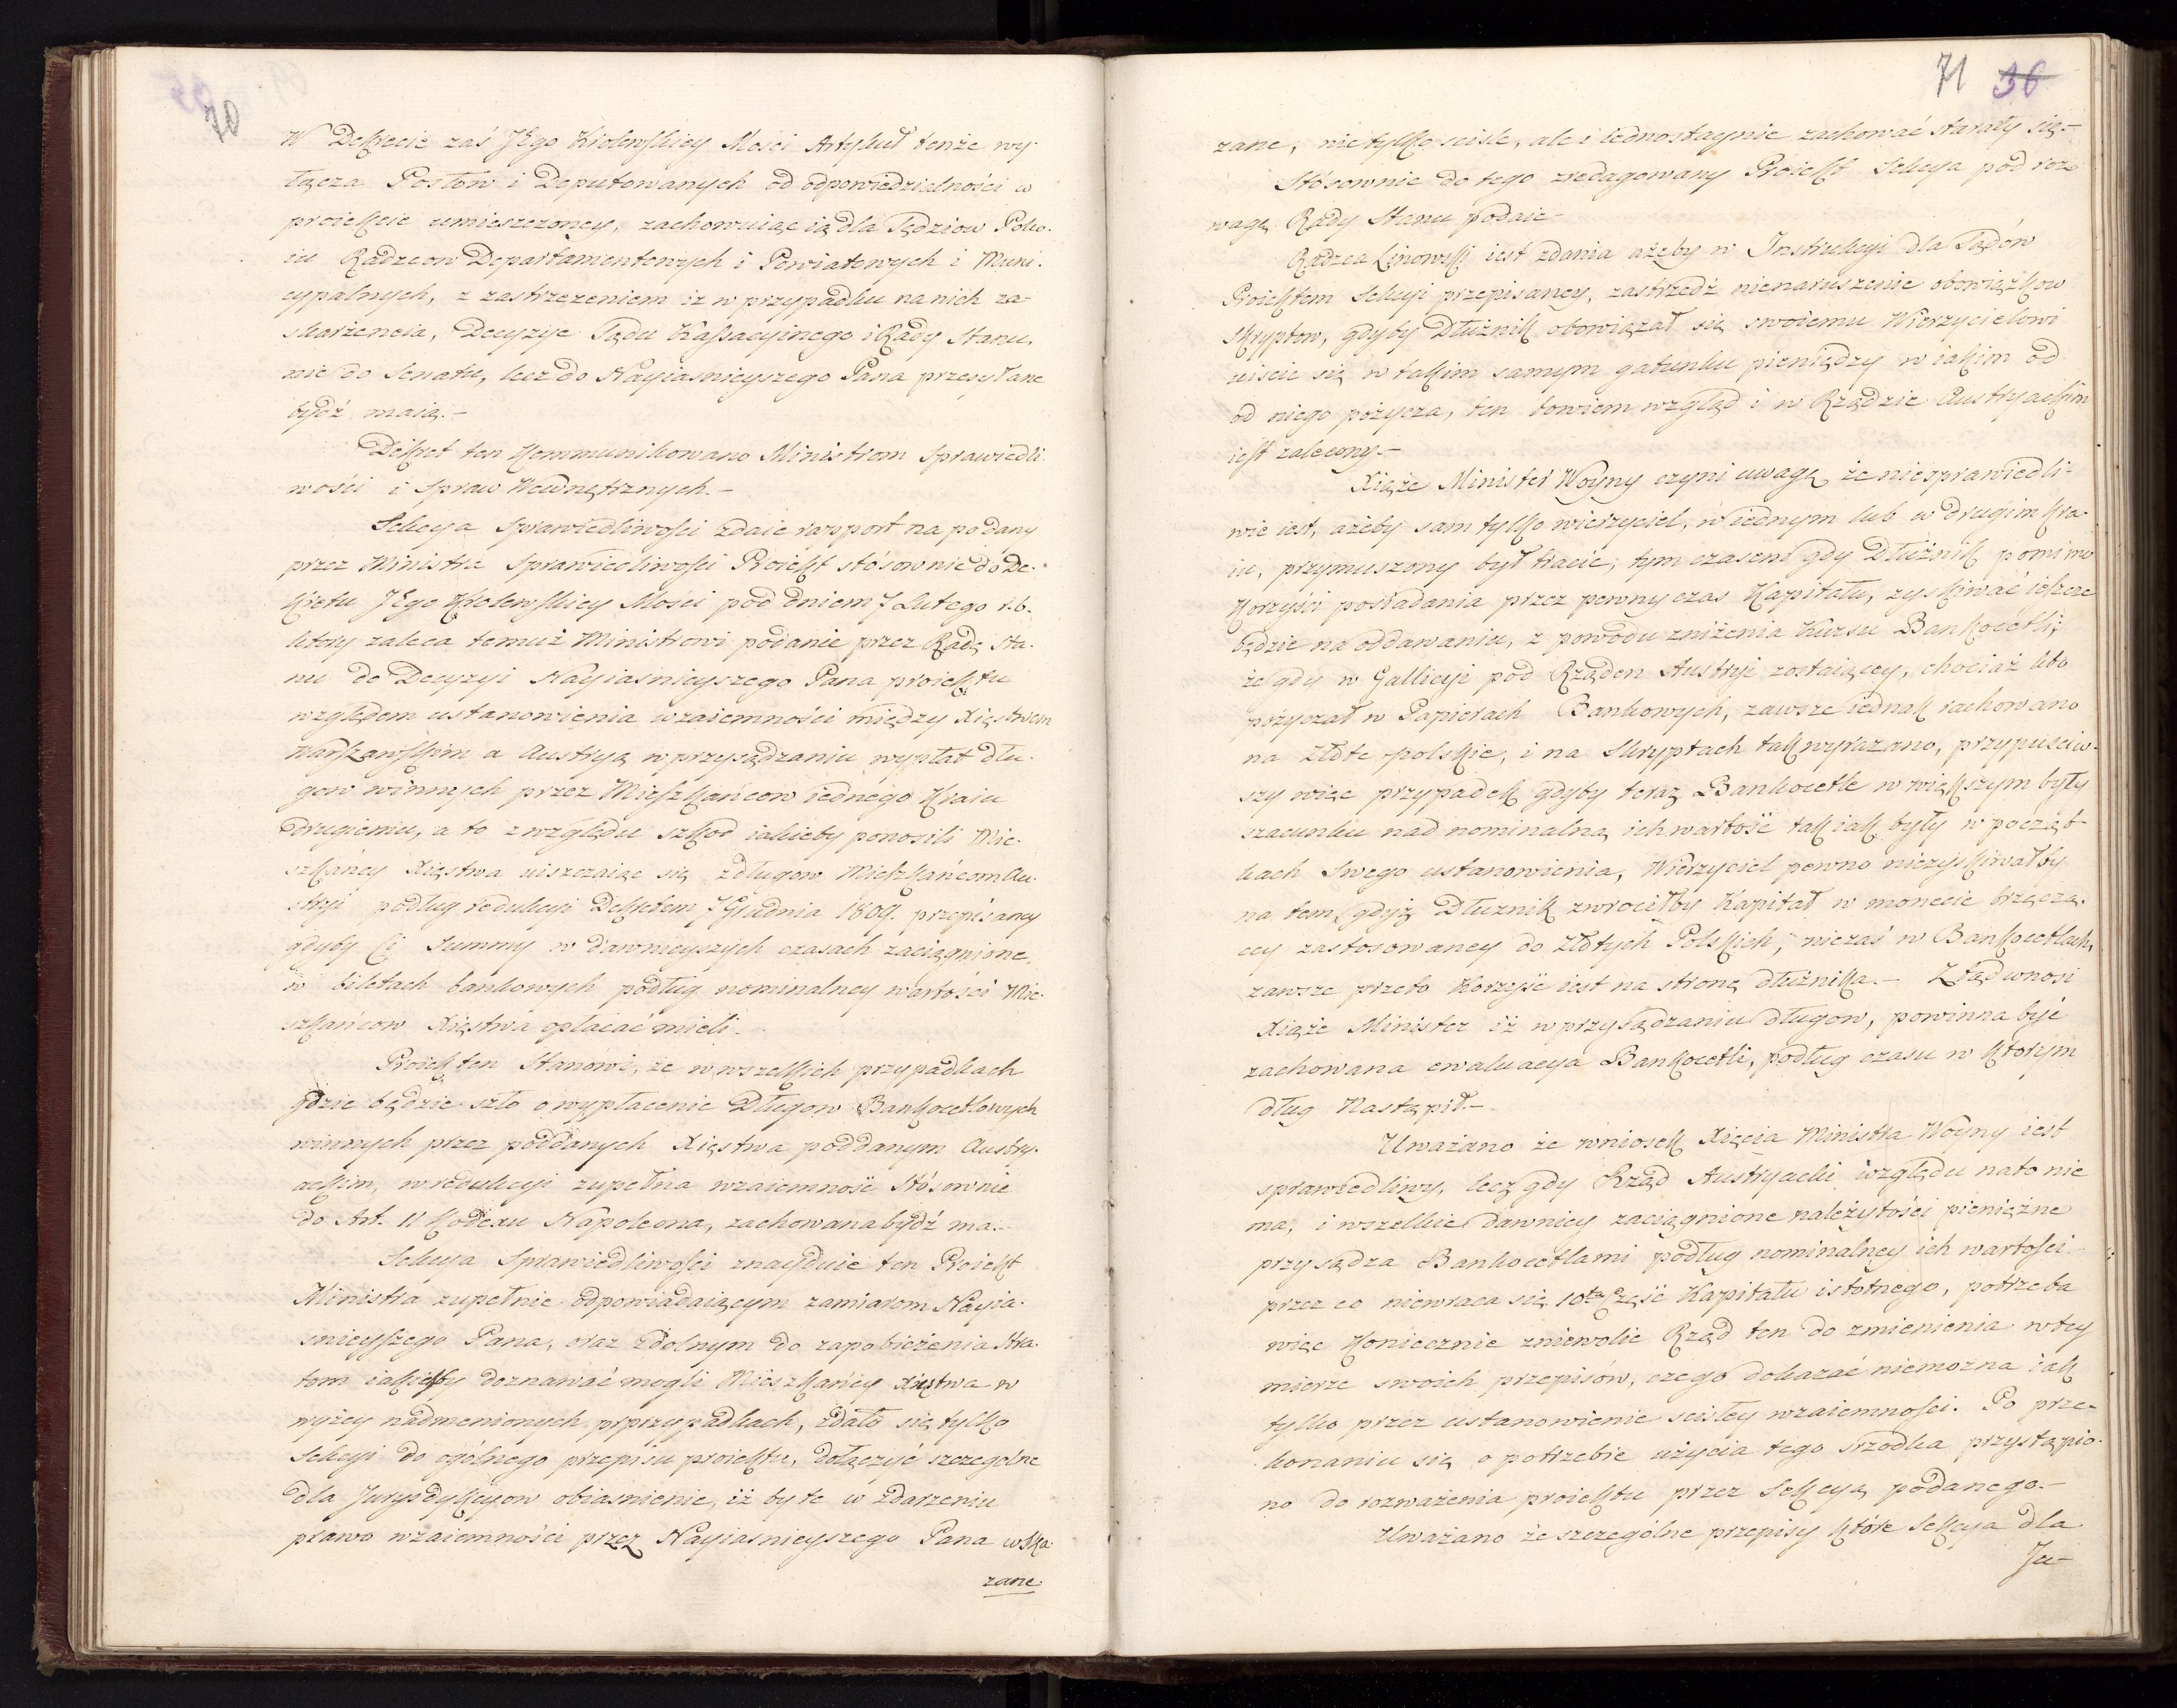 70
W Dekrecie zaś JEgo Krolewskiey Mości Artykuł tenże wy-
łącza Posłow i Deputowanych od odpowiedzialności w
proiekcie umieszczoney, zachowuiąc ią dla Sędziow Poko-
iu Radzcow Departamentowych i Powiatowych i Muni-
cypalnych, z zastrzeżeniem iż w przypadku na nich za-
skarżenia, Decyzye Sądu Kassacyinego i Rady Stanu,
nie do Senatu, lecz do Nayiasnieyszego Pana przesyłane
bydź maią.-
Dekret ten kommunikowano Ministrom Sprawiedli-
wości i Spraw Wewnętrznych.-
Sekcya Sprawiedliwości zdaie rapport na podany
przez Ministra Sprawiedliwości Proiekt stósownie do De-
kretu JEgo Krolewskiey Mości pod dniem 7 Lutego r.b.
ktory zaleca temuż Ministrowi podanie przez Radę Sta-
nu do Decyzyi Nayiasnieyszego Pana proiektu
względem ustanowienia wzaiemności między Xięstwem
Warszawskim a Austryą w przysądzaniu wypłat dłu-
gow winnych przez Mieszkańcow iednego Kraiu
drugiemu, a to z względu szkod iakieby ponosili Mie-
szkańcy Xięstwa uiszczaiąc się z długow Mieszkańcom Au-
stryi podług redukcyi Dekretem 7 Grudnia 1809. przepisaney
gdyby Ci Summy w dawnieyszych czasach zaciągnione,
w biletach bankowych podług nominalney wartości Mie-
szkańcow Xięstwa opłacać mieli.
Proiekt ten Stanowi, że w wszelkich przypadkach
gdzie będzie szło o wypłacenie Długow Bankocetlowych
winnych przez poddanych Xięstwa poddanym Austry-
ackim, w redukcyi zupełna wzaiemność Stósownie
do Art. 11 Kodexu Napoleona, zachowana bydź ma.-
Sekcya Sprawiedliwości znayduie ten Proiekt
Ministra zupełnie odpowiadaiącym zamiarom Nayia-
snieyszego Pana, oraz zdolnym do zapobieżenia Stra-
tom iakieby doznawać mogli Mieszkańcy Xięstwa w
wyżey nadmienionych przypadkach, zdało się tylko
Sekcyi do ogólnego przepisu proiektu, dołączyć szczególne
dla Jurysdykcyow obiasnienie, iż by te w zdarzeniu
prawo wzaiemności przez Nayiasnieyszego Pana wska-
zane.
71 36
zane, nie tylko scisle, ale i iednostaynie zachować starały się.-
Stósownie do tego zredagowany Proiekt Sekcya pod roz-
wagę Rady Stanu podaie.-
Radzca Linowski iest zdania ażeby w Instrukcyi dla Sądów
Proiektem Sekcyi przepisaney, zastrzedź nienaruszenie obowiązkow
Skryptow, gdyby Dłużnik obowiązał się swoiemu Wierzycielowi
uiscić się w takim samym gatunku pieniędzy w iakim od
od niego pożycza, ten bowiem wzgląd i w Rządzie Austryackim
iest zalecony.-
Xiąże Minister Woyny czyni uwagę że niesprawiedli-
wie iest, ażeby sam tylko wierzyciel, w iednym lub w drugim Kra-
iu, przymuszony był tracić; tym czasem gdy Dłużnik pomimo
Korzyści posiadania przez pewny czas Kapitału, zyskiwać ieszcze
będzie na oddawaniu, z powodu zniżenia Kursu Bankocetli;
że gdy w Gallicyi pod Rządem Austryi zostaiącey, chociaż kto
pożyczał w Papierach Bankowych, zawsze iednak rachowano
na Złote polskie, i na Skryptach tak wyrażano, przypusciw-
szy więc przypadek gdyby teraz Bankocetle w większym były
szacunku nad nominalną ich wartość tak iak były w począt-
kach Swego ustanowienia, Wierzyciel pewno niezyskiwałby
na tem, gdyż Dłużnik zwrociłby Kapitał w monecie brzęczą-
cey zastosowaney do złotych Polskich, nie zaś w Bankocetlach,
zawsze przeto Korzyść iest na stronę dłużnika.- Ztąd wnosi
Xiąże Minister iż w przysądzaniu długow, powinna być
zachowana ewaluacya Bankocetli, podług czasu w ktorym
dług Nastąpił.-
Uważano że wniosek Xięcia Ministra Woyny iest
sprawiedliwy, lecz gdy Rząd Austryacki względu na to nie
ma, i wszelkie dawniey zaciągnione należytości pieniężne
przysądza Bankocetlami podług nominalney ich wartości
przez co niewraca się 10ta Część Kapitału istotnego, potrzeba
więc Koniecznie zniewolić Rząd ten do zmienienia w tey
mierze swoich przepisów, czego dokazać niemożna iak
tylko przez ustanowienie scisłey wzaiemności. Po prze-
konaniu się o potrzebie użycia tego srzodka przystąpio-
no do rozważenia proiektu przez Sekcyą podanego.-
Uważano że szczególne przepisy które Sekcya dla
Ju-